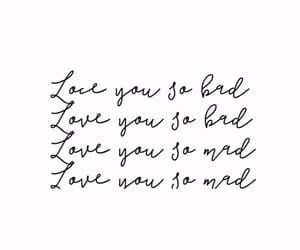 Love you so bad
Love you so bad
Love you so mad
Love you so mad